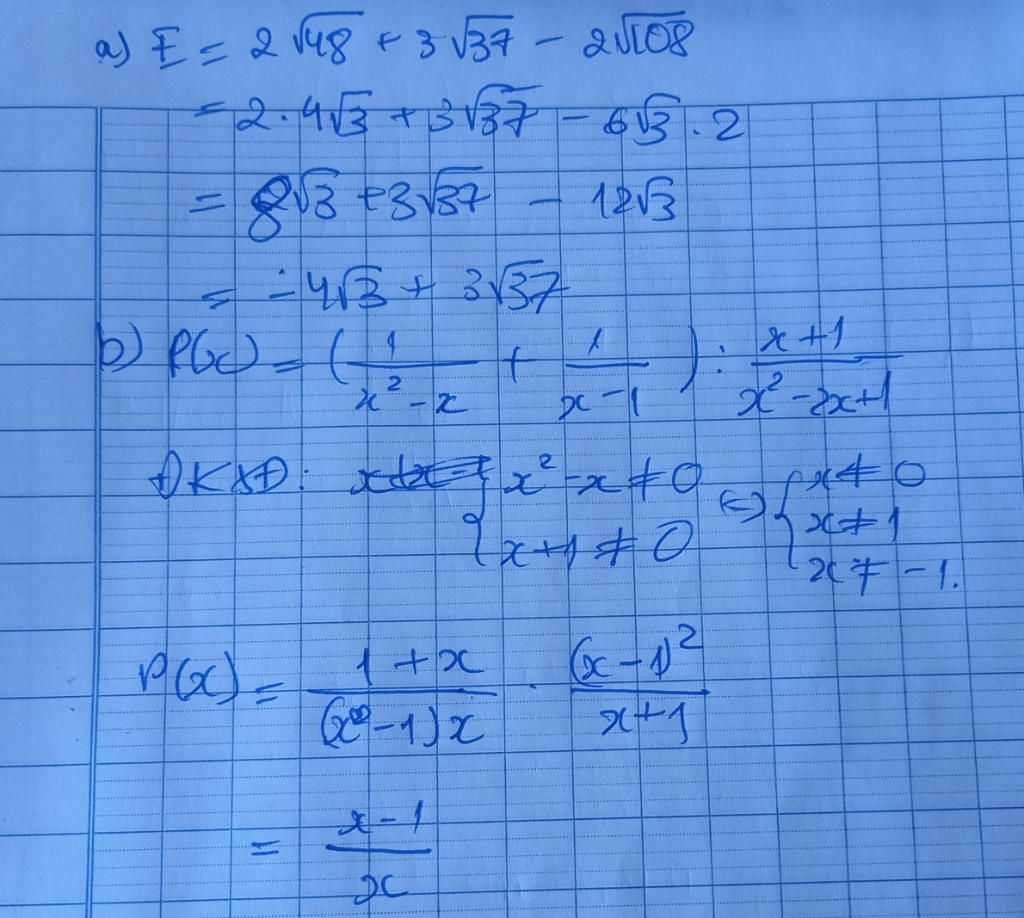 a) E = 2√48 + 3√37 - 2√108
= 2.4√3 + 3√37 - 6√3 . 2
= 8√3 + 3√37 - 12√3
= -4√3 + 3√37
b) P(x) = (1/(x² - x) + 1/(x - 1)) : (x + 1)/(x² - 2x + 1)
ĐKXĐ: { x² - x ≠ 0 ; x + 1 ≠ 0 (=) { x ≠ 0 ; x ≠ 1 ; x ≠ -1.
P(x) = (1 + x)/((x - 1)x) . (x - 1)²/(x + 1)
= (x - 1)/x